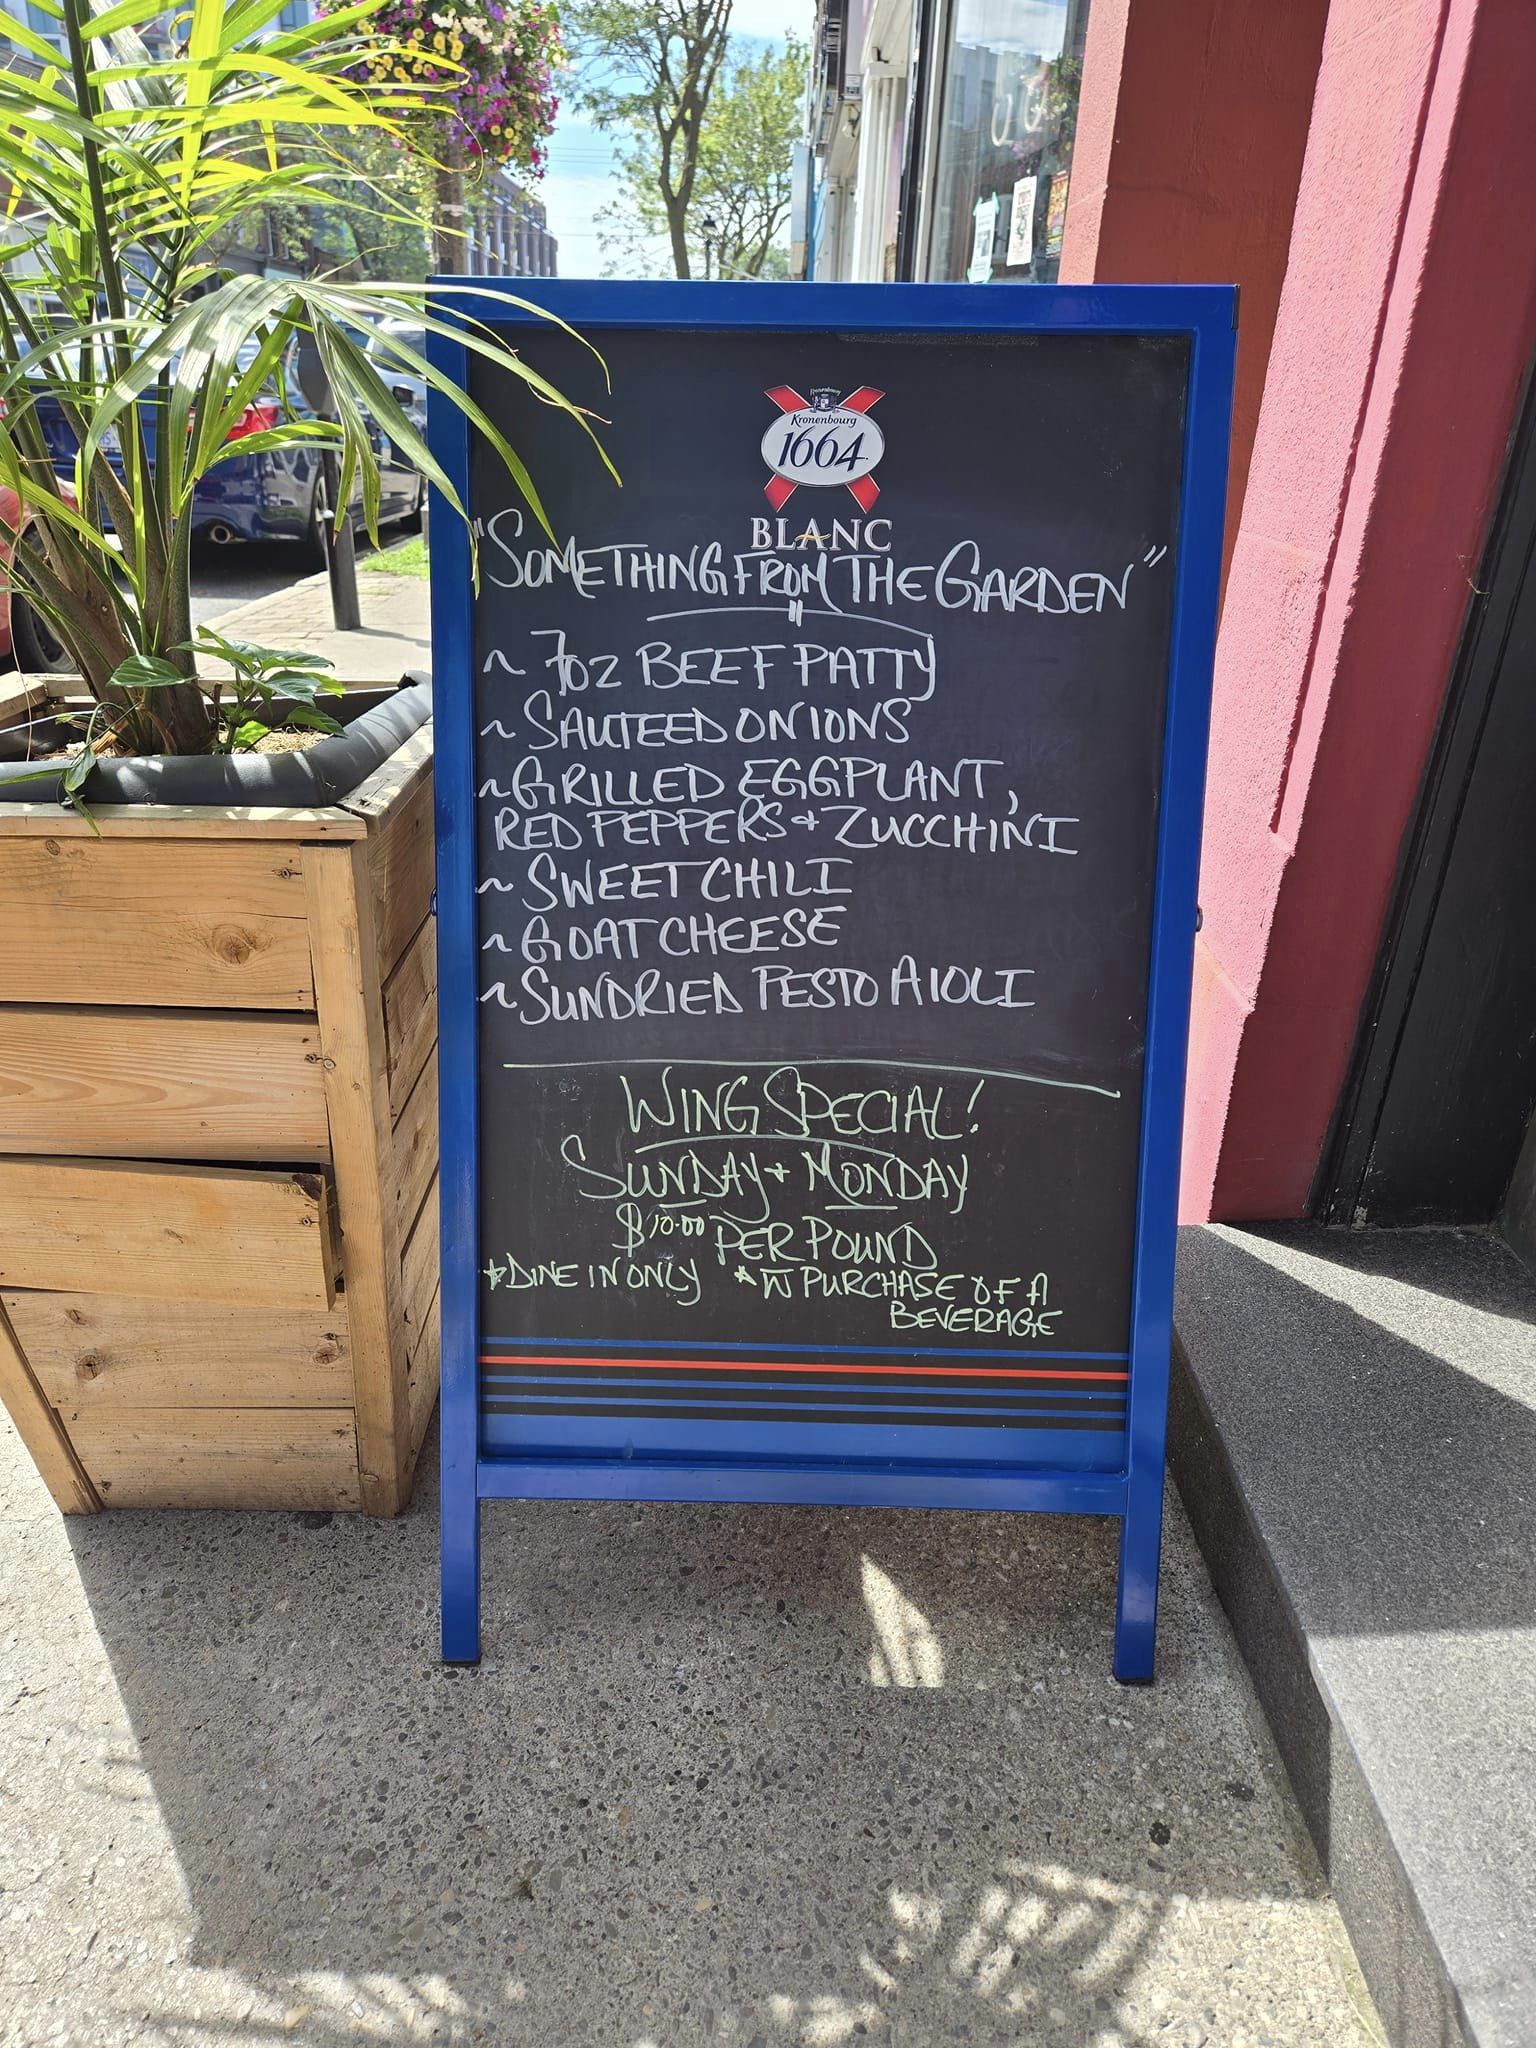 Kronenbourg
1664
BLANC
"SOMETHING FROM THE GARDEN"
~ 7oz BEEF PATTY
~ SAUTEED ONIONS
~ GRILLED EGGPLANT,
RED PEPPERS + ZUCCHINI
~ SWEET CHILI
~ GOAT CHEESE
~ SUNDRIED PESTO AIOLI
WING SPECIAL!
SUNDAY + MONDAY
$10.00 PER POUND
*DINE IN ONLY *W PURCHASE OF A
BEVERAGE